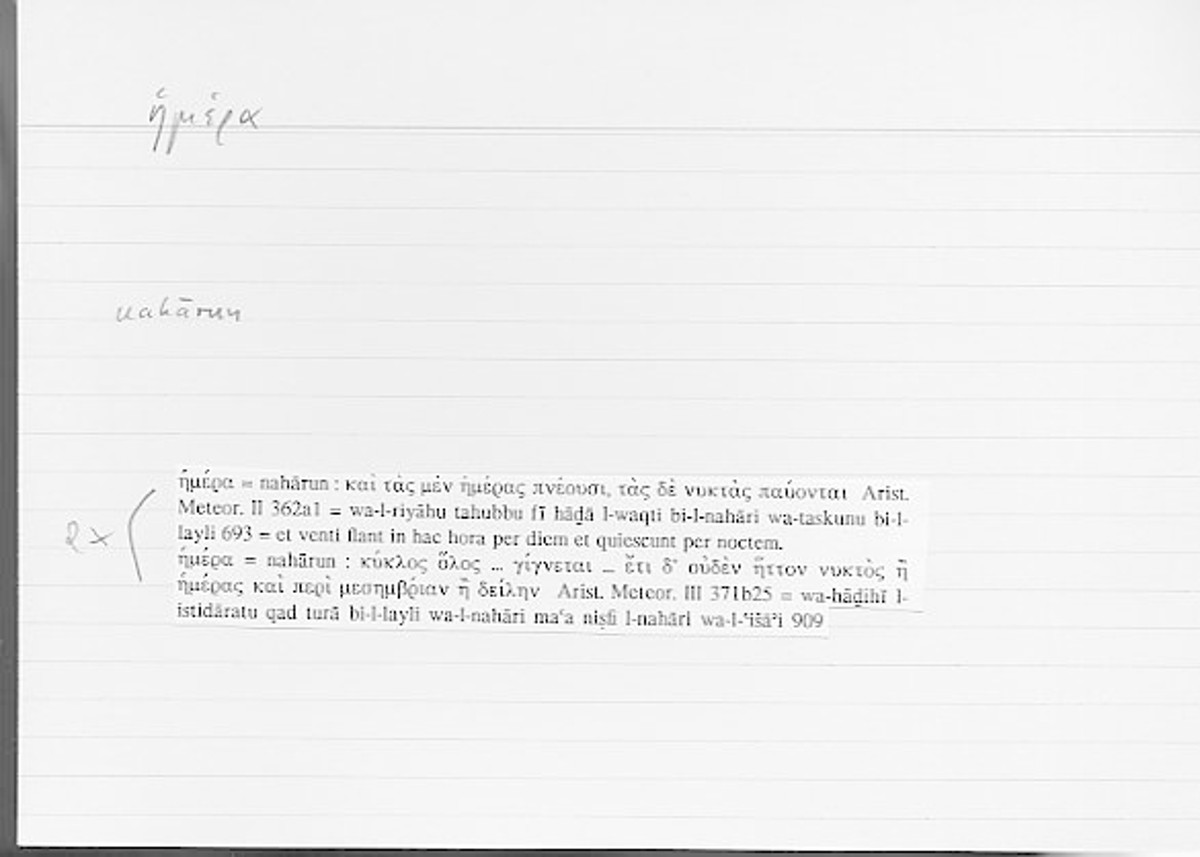 ἡμέρα
nahārun
2 x
ἡμέρα = nahārun : καὶ τὰς μὲν ἡμέρας πνέουσι, τὰς δὲ νυκτὰς παύονται Arist.
Meteor. II 362a1 = wa-l-riyāḥu tahubbu fī hāḏā l-waqti bi-l-nahāri wa-taskunu bi-l-
layli 693 = et venti flant in hac hora per diem et quiescunt per noctem.
ἡμέρα = nahārun : κύκλος ὅλος ... γίγνεται ... ἔτι δ' οὐδὲν ἧττον νυκτὸς ἢ
ἡμέρας καὶ περὶ μεσημβρίαν ἢ δείλην Arist. Meteor. III 371b25 = wa-hāḏihī l-
istidāratu qad turā bi-l-layli wa-l-nahāri maʿa niṣfi l-nahāri wa-l-ʿišāʾi 909